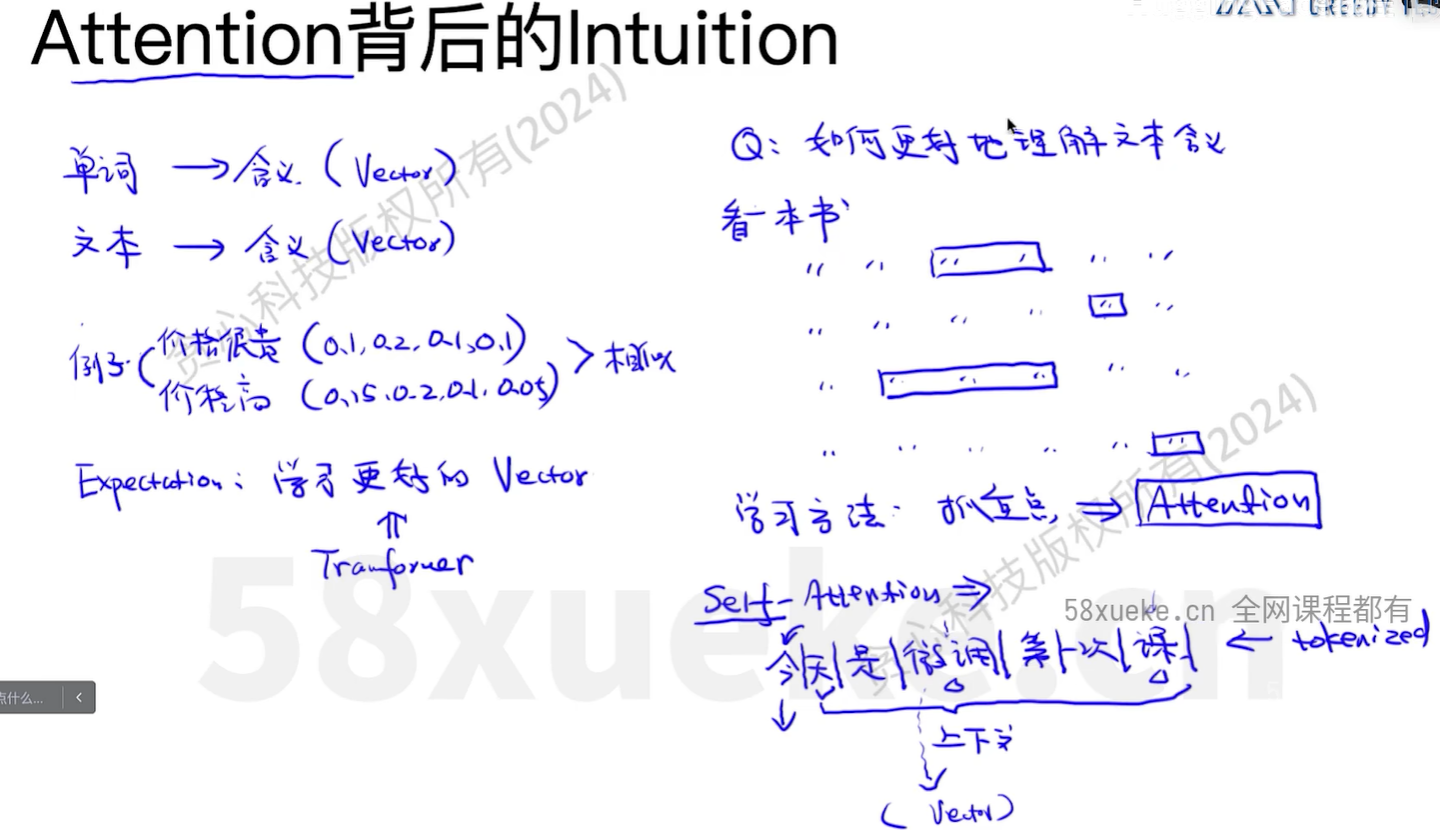 Attention背后的Intuition
单词 → 含义 (Vector)
文本 → 含义 (Vector)
例子 (价格很贵 (0.1, 0.2, 0.1, 0.1)
价格高 (0.15, 0.2, 0.1, 0.05) > 相似
Expectation: 学习更好的 Vector
⇑
Tranformer
Q: 如何更好地理解文本含义
看一本书
学习方法: 抓重点 ⇒ Attention
Self-Attention ⇒
今天|是|微调|第一次|课| ← tokenized
上下文
(Vector)
贪心科技版权所有(2024)
贪心科技版权所有(2024)
58xueke.cn 全网课程都有
58xueke.cn
点什么...